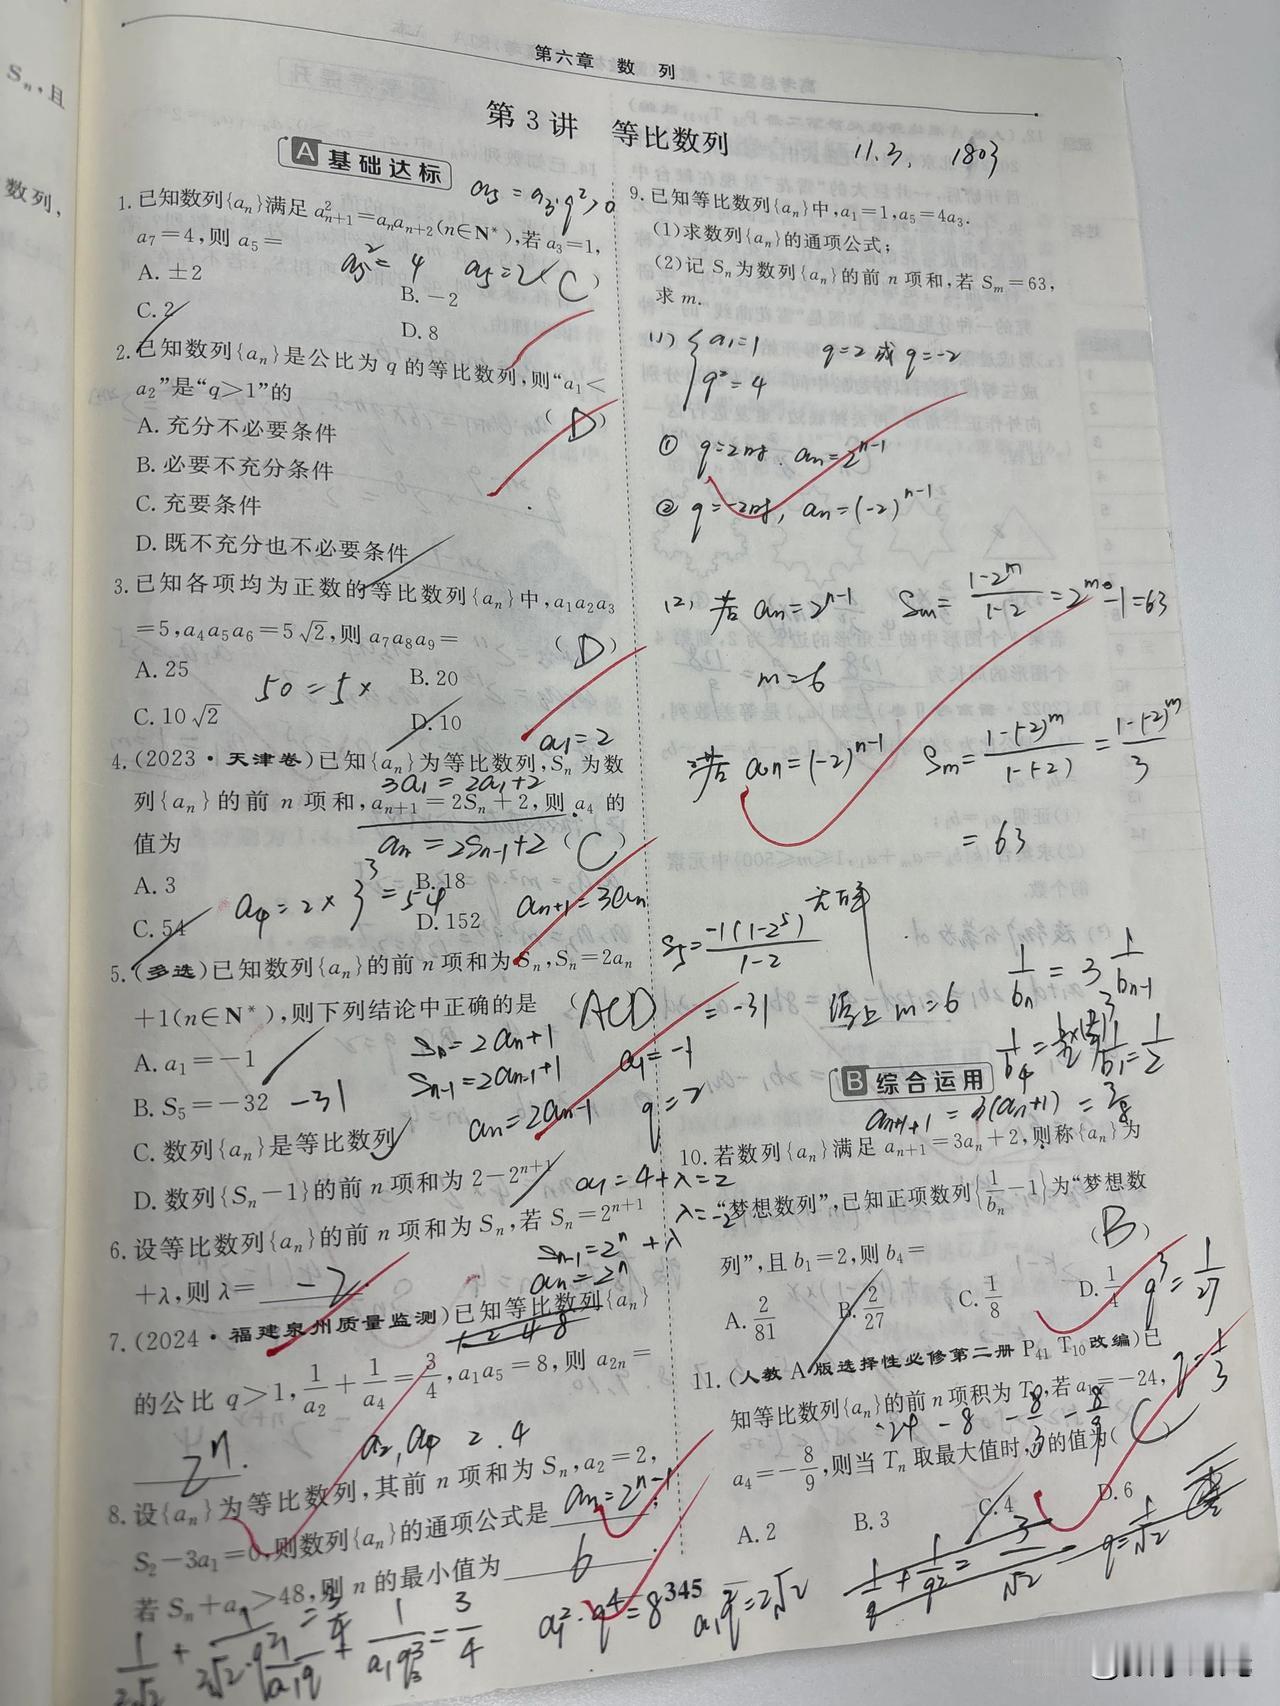 第六章 数 列
第3讲 等比数列
11.3. 1803
A 基础达标
a₅=a₃·q²>0
1.已知数列{aₙ}满足a²ₙ₊₁=aₙaₙ₊₂(n∈N*),若a₃=1,
a₇=4,则a₅=
a₅²=4 a₅=2 (C)
A.±2
B.-2
C.2
D.8
2.已知数列{aₙ}是公比为q的等比数列,则“a₁<
a₂”是“q>1”的
(D)
A.充分不必要条件
B.必要不充分条件
C.充要条件
D.既不充分也不必要条件
3.已知各项均为正数的等比数列{aₙ}中,a₁a₂a₃
=5,a₄a₅a₆=5√2,则a₇a₈a₉=
(D)
A.25
B.20
50=5×
C.10√2
D.10
a₁=2
4.(2023·天津卷)已知{aₙ}为等比数列,Sₙ为数
3a₁=2a₁+2
列{aₙ}的前n项和,aₙ₊₁=2Sₙ+2,则a₄的
值为
aₙ=2Sₙ₋₁+2 (C)
A.3
B.18
a₄=2×3³=54
aₙ₊₁=3aₙ
C.54
D.152
5.(多选)已知数列{aₙ}的前n项和为Sₙ,Sₙ=2aₙ
+1(n∈N*),则下列结论中正确的是
(ACD)
Sₙ=2aₙ+1
A.a₁=-1
a₁=-1
Sₙ₋₁=2aₙ₋₁+1
B.S₅=-32
-31
aₙ=2aₙ₋₁
q=2
C.数列{aₙ}是等比数列
D.数列{Sₙ-1}的前n项和为2-2ⁿ⁺¹
a₁=4+λ=2
λ=-2
6.设等比数列{aₙ}的前n项和为Sₙ,若Sₙ=2ⁿ⁺¹
Sₙ₋₁=2ⁿ+λ
+λ,则λ= -2
aₙ=2ⁿ
7.(2024·福建泉州质量监测)已知等比数列{aₙ}
1 2 4 8
的公比q>1,1/a₂+1/a₄=3/4,a₁a₅=8,则a₂ₙ=
2ⁿ.
a₂,a₄ 2.4
8.设{aₙ}为等比数列,其前n项和为Sₙ,a₂=2,
S₂-3a₁=0,则数列{aₙ}的通项公式是 aₙ=2ⁿ⁻¹;
若Sₙ+aₙ>48,则n的最小值为 6.
1/(a₁q³)=3/4
a₁²·q⁴=8
345
9.已知等比数列{aₙ}中,a₁=1,a₅=4a₃.
(1)求数列{aₙ}的通项公式;
(2)记Sₙ为数列{aₙ}的前n项和,若Sₘ=63,
求m.
(1) {a₁=1 q=2或q=-2
q²=4
① q=2时. aₙ=2ⁿ⁻¹
② q=-2时, aₙ=(-2)ⁿ⁻¹
(2) 若 aₙ=2ⁿ⁻¹ Sₘ=(1-2ᵐ)/(1-2)=2ᵐ-1=63
m=6
若 aₙ=(-2)ⁿ⁻¹ Sₘ=(1-(-2)ᵐ)/(1-(-2))=(1-(-2)ᵐ)/3
=63
S₅=(-1(1-2⁵))/(1-2)
=-31
综上 m=6
1/bₙ=3 1/bₙ₋₁
B 综合运用
aₙ₊₁+1=3(aₙ+1)
10.若数列{aₙ}满足aₙ₊₁=3aₙ+2,则称{aₙ}为
“梦想数列”,已知正项数列{1/bₙ-1}为“梦想数
列”,且b₁=2,则b₄=
(B)
A.2/81
B.2/27
C.1/8
D.1/4
q³=1/27
11.(人教A版选择性必修第二册P₄₁ T₁₀改编)已
q=1/3
知等比数列{aₙ}的前n项积为Tₙ,若a₁=-24,
-24 -8 -8/3 -8/9
a₄=-8/9,则当Tₙ取最大值时,n的值为(C
A.2
B.3
C.4
D.6